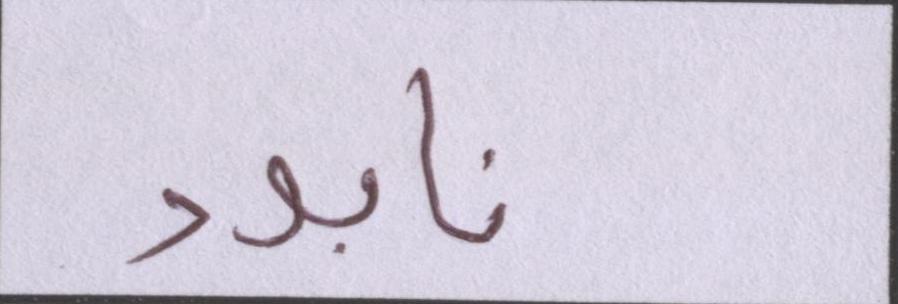 نابود